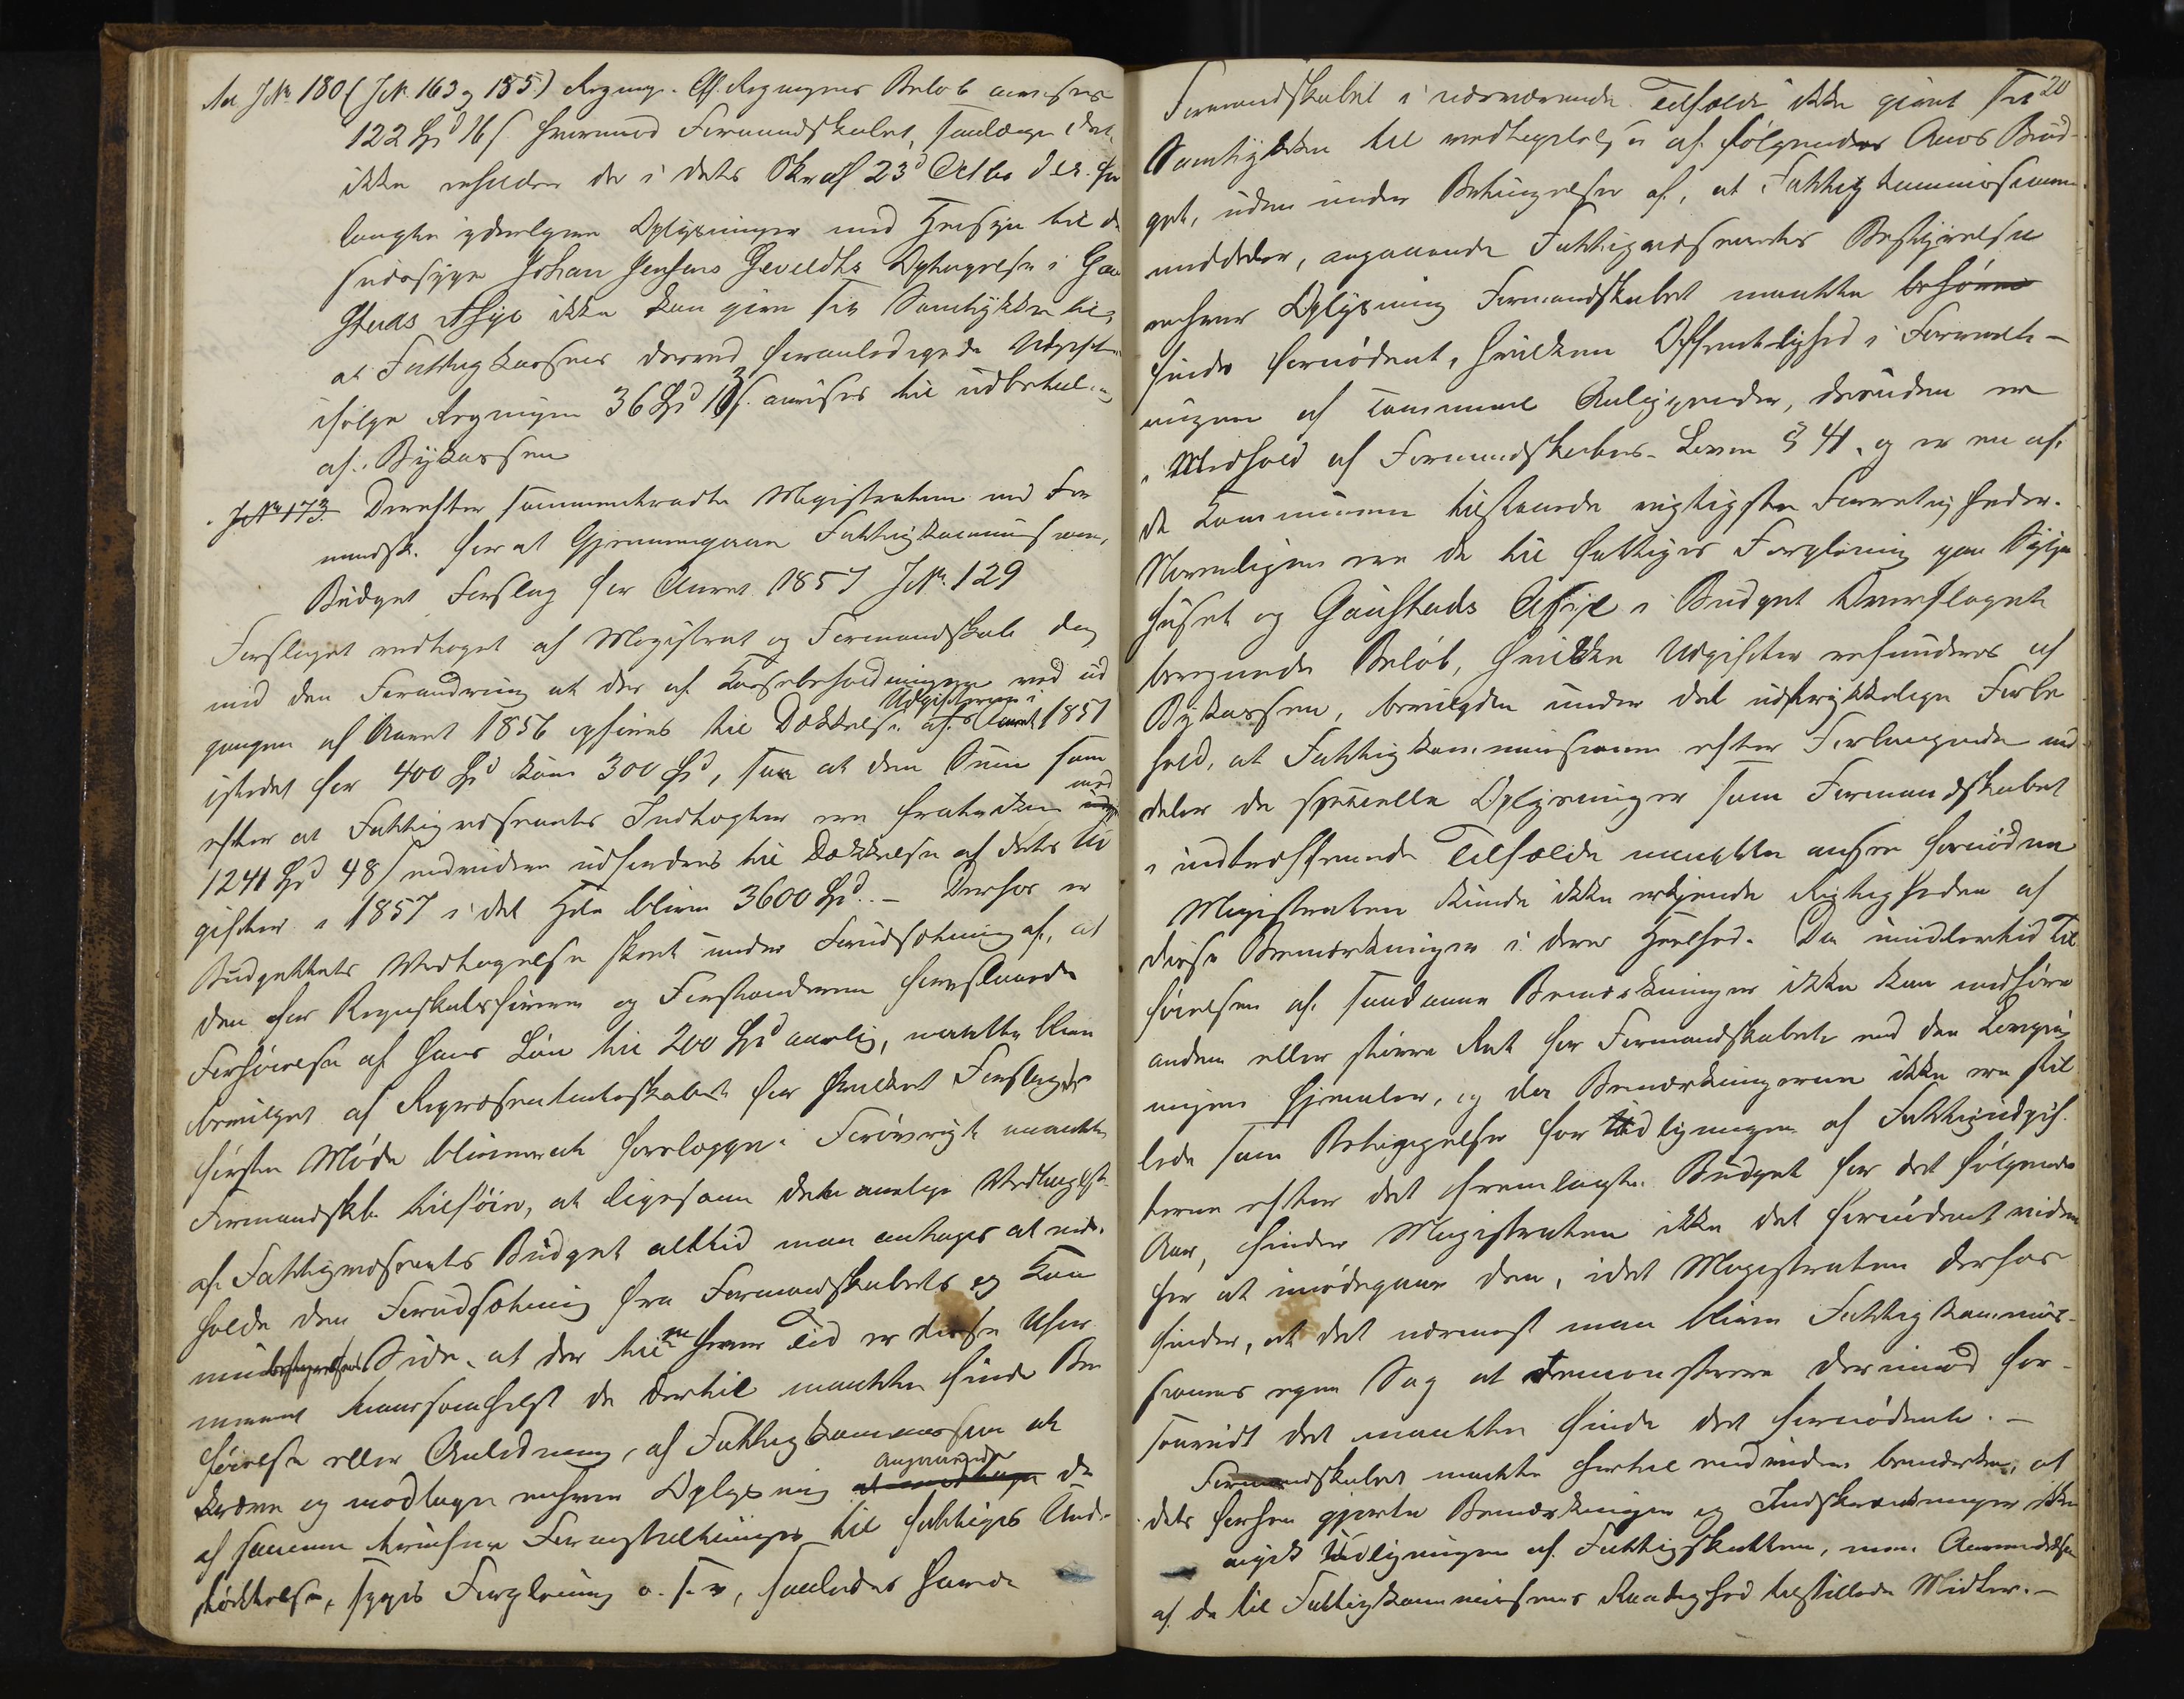 Ad JNr 180 (JNr. 163 og 185.) Regning. Af Regningens Beløb anvises
122 Spd 16 s hvorimod Formandskabet, saalænge det
ikke erholder de i dets Skr af 23d Octbr d. A. for
langte yderligere Oplysninger med Hensyn til den
sindssyge Johan Jensens Optagelse i Gau
stads Asyl ikke kan give sit Samtykke til,
at Fattigkassens derved foranledigede Udgifter
ifølge Regningen 36 Spd anvises til Udbetaling
af Bykassen
JNr 173. Derefter sammentraadte Magistraten med For
mandsk. for at Gjennemgaae Fattigkommissionens
Budget Forslag for Aaret 1857 JNr. 129
Forslaget vedtoges af Magistrat og Formandskab dog
med den Forandring at der af Kassebeholdningen ved Ud
gangen af Aaret 1856 opføres til Dækkelse af Udgifterne i Aaret 1857
istedet for 400 Spd kun 300 Spd, saa at den Sum som
efter at Fattigvæsenets Indtægter ere fratrukne med
1241 Spd 48 s endvidere udfordres til Dækkelse af dets Ud
gifter i 1857 i det Hele bliver 3600 Spd. – Derhos er
Budgettets Vedtagelse skeet under Forudsætning af, at
den for Regnskabsføreren og Forstanderen foreslaaede
Forhøielse af hans Løn til 200 Spd aarlig, maatte blive
bevilget af Repræsentantskabet for hvilket Forslaget
første Møde bliver at forelægge. Forøvrigt maatte
Formandskb. tilføie, at ligesom dets aarlige Vedtagelse
af Fattigvæsenets Budget altid maa antages at inde
holde den Forudsætning fra Formandskabets og Kom
munebestyrelsens Side, at der til enhver Tid er disse uhem
met hvorsomhelst de dertil maatte finde Be
føielse eller Anledning, af Fattigkommissionen at
kræve og modtage enhver Oplysning angaaende de
af samme trufne Foranstaltninger til Fattiges Under
støttelse, Syges Forpleining o. s. v, saaledes havde
20
Formandskabet i nærværende Tilfælde ikke givet sit
Samtykke til Vedtagelsen af følgende Aars Bud-
get, uden under Betingelse af, at Fattigkommissionen
meddeler, angaaende Fattigvæsenets Bestyrelse
enhver Oplysning Formandskabet maatte behøve
finde fornødent, hvilken Offentlighed i Forvalt-
ningen af communale Anliggender, desuden er
i Medhold af Formandskabs-Loven § 41, og er en af
de Kommunen tilstaaede vigtigste Forrettigheder.
Navnligen ere de til Fattiges Forpleining paa Syge
huset og Gaustads Asyl i Budget Overslaget
beregnede Beløb, hvilke Udgifter refunderes af
Bykassen, bevilgede under det udtrykkelige Forbe
hold, at Fattigkommissionen efter Forlangende med
deler de specielle Oplysninger som Formandskabet
i indtræffende Tilfælde maatte ansee fornødne
Magistraten kunde ikke erkjende Rigtigheden af
disse Bemærkninger i deres Heelhed. Da imidlertid Til
føielsen af saadanne Bemærkninger ikke kan medføre
anden eller større Ret for Formandskabet end den Lovgiv
ningen hjemler, og da Bemærkningerne ikke ere stil
lede som Betingelse for Udligningen af Fattigudgif
terne efter det fremlagte Budget for det følgende
Aar, finder Magistraten ikke det fornødent videre
her at imødegaae dem, idet Magistraten derhos
finder, at det nærmest maa blive Fattigkommis-
sionens egen Sag at demonstrere derimod for-
saavidt det maatte finde det fornødent. –
Formandskabet maatte hertil endvidere bemærke, at
dets forhen gjorte Bemærkninger og Indskrænkninger ikke
angik Udligningen af Fattigskatten, men Anvendelsen
af de til Fattigkommissionens Raadighed tilstillede Midler. –